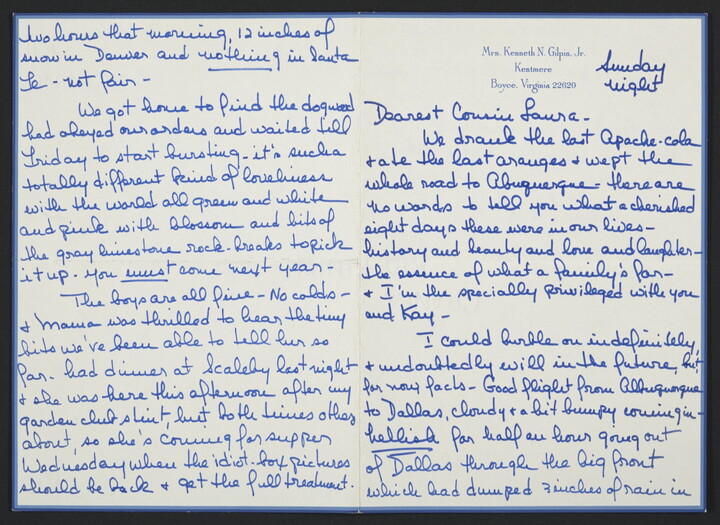 Mrs. Kenneth N. Gilpin, Jr.
Kentmere
Boyce, Virginia 22620
Sunday
night
Dearest Cousin Laura -
We drank the last Apache-cola
+ ate the last oranges + wept the
whole road to Albuquerque - there are
no words to tell you what a cherished
eight days these were in our lives -
history and beauty and love and laughter -
the essence of what a family's for -
+ I'm the specially privileged with you
and Kay -
I could burble on indefinitely,
+ undoubtedly will in the future, but
for now facts - Good flight from Albuquerque
to Dallas, cloudy + a bit bumpy coming in -
hellish for half an hour going out
of Dallas through the big front
which had dumped 3 inches of rain in
two hours that morning, 12 inches of
snow in Denver and nothing in Santa
Fe - not fair -
We got home to find the dogwood
had obeyed our orders and waited till
Friday to start bursting - it's such a
totally different kind of loveliness
with the world all green and white
and pink with blossom and bits of
the gray limestone rock-breaks to pick
it up. You must come next year -
The boys are all fine - No colds -
+ Mama was thrilled to hear the tiny
bits we've been able to tell her so
far. had dinner at Scaleby last night
+ she was here this afternoon after my
garden club stint, but both times others
about, so she's coming for supper
Wednesday when the idiot-box pictures
should be back + get the full treatment.